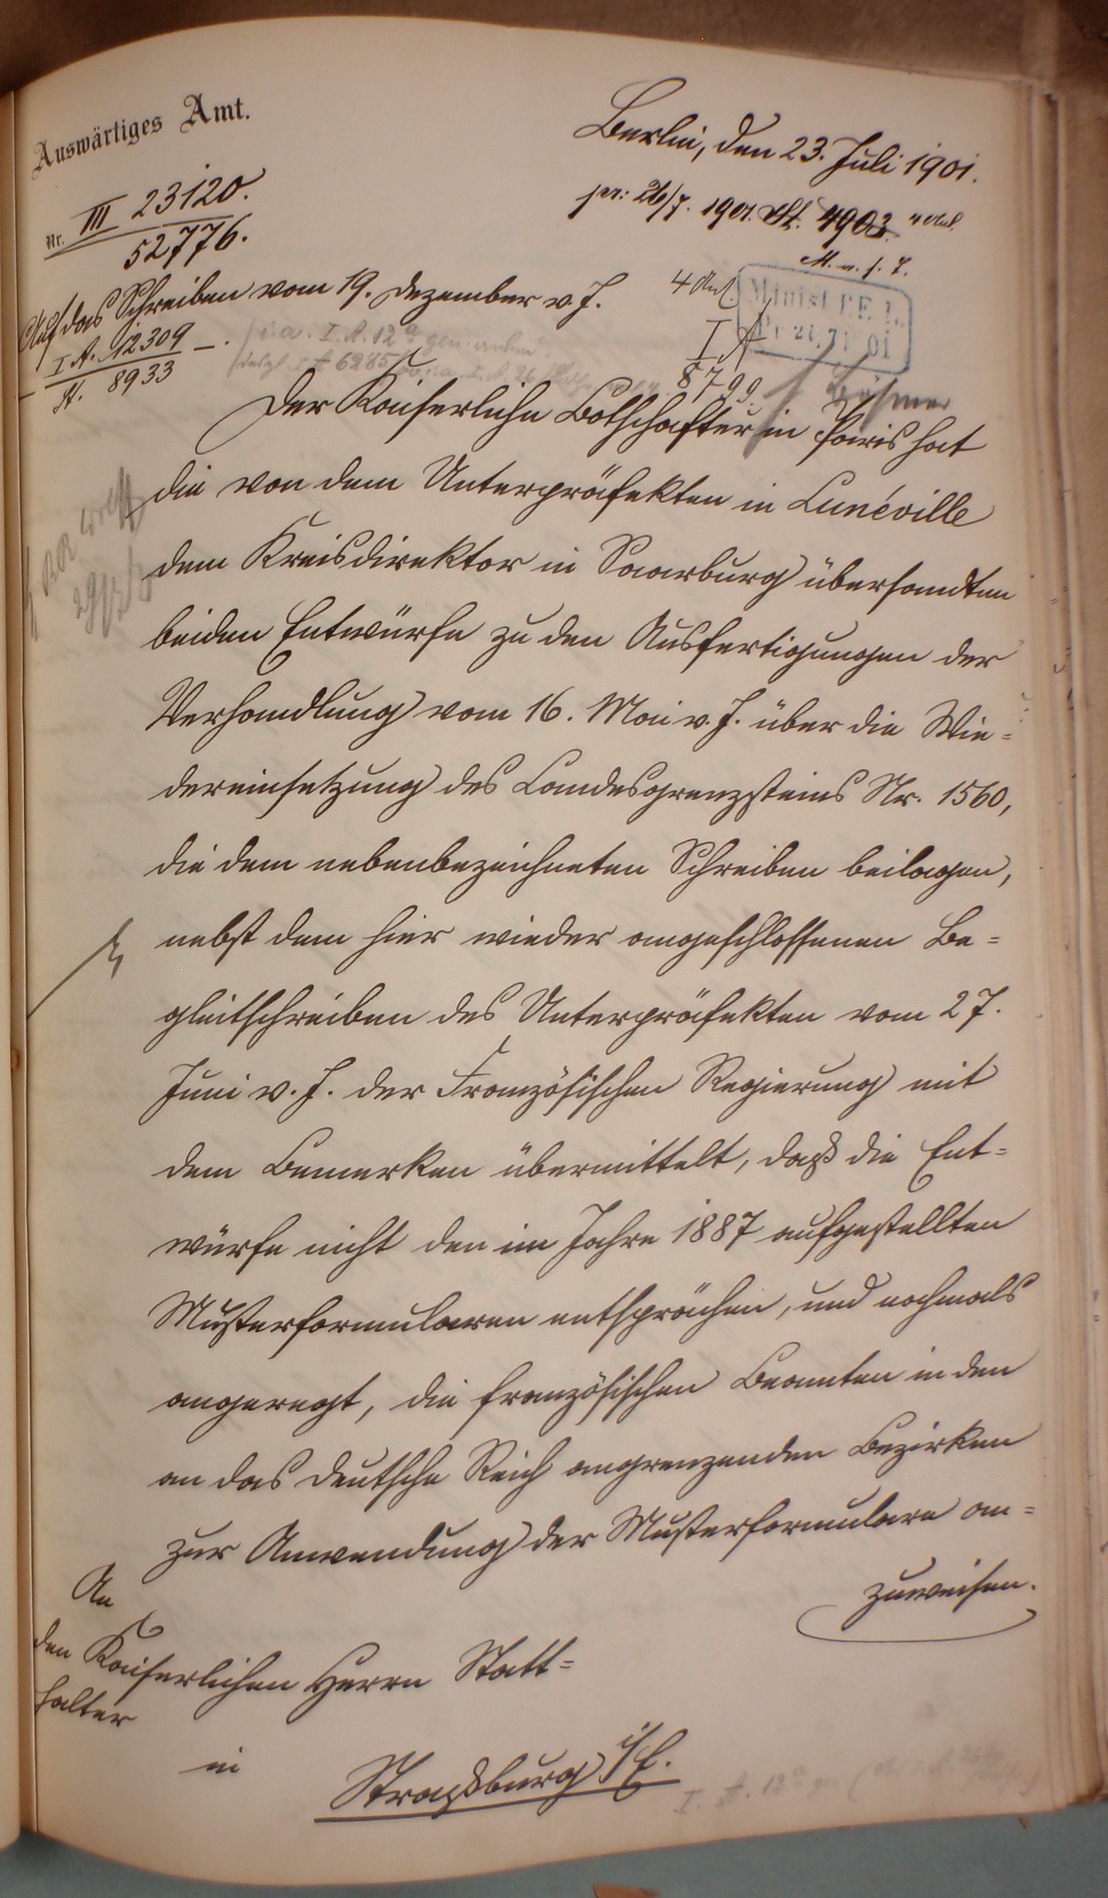 Auswärtiges Amt.
Berlin, den 23. Juli 1901.
Nr. III 23120.
52776.
pr: 26/7. 1901. St. 4903. 4 Anl.
M. u. f. E.
Auf das Schreiben vom 19. Dezember v. J.
4 Anl.
Minist f. E. L.
I. A. 12309
I A
St. 8933
8799
Der Kaiserliche Botschafter in Paris hat
die von dem Unterpräfekten in Lunéville
dem Kreisdirektor in Saarburg übersandten
beiden Entwürfe zu den Ausfertigungen der
Verhandlung vom 16. Mai v. J. über die Wie=
dereinsetzung des Landesgrenzsteins Nr. 1560,
die dem nebenbezeichneten Schreiben beilagen,
nebst dem hier wieder angeschlossenen Be=
gleitschreiben des Unterpräfekten vom 27.
Juni v. J. der Französischen Regierung mit
dem Bemerken übermittelt, daß die Ent=
würfe nicht den im Jahre 1887 aufgestellten
Musterformularen entsprächen, und nochmals
angeregt, die französischen Beamten in den
an das Deutsche Reich angrenzenden Bezirken
zur Anwendung der Musterformulare an=
zuweisen.
An
den Kaiserlichen Herrn Statt=
halter
in
Straßburg i/E.